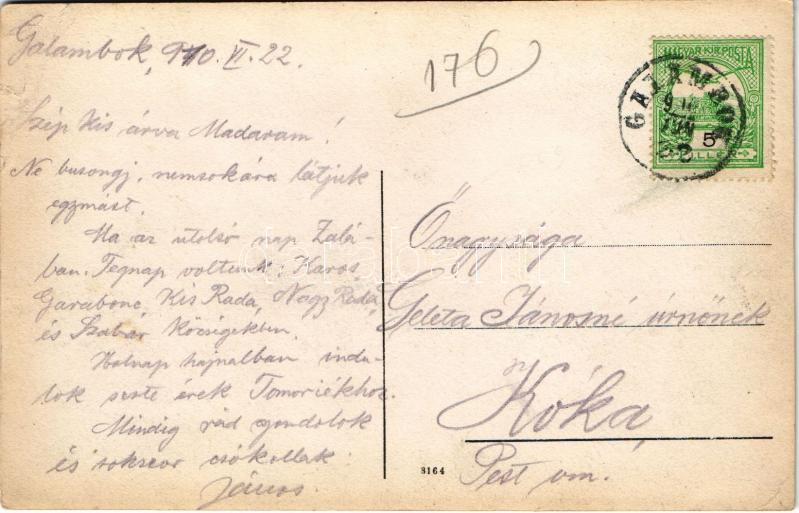 Galambok, 910. VI. 22.
176
MAGYAR KIR. POSTA
GALAMBOK
5
Szép kis árva Madaram!
Ne busongj, nemsokára látjuk
egymást.
Ma az utolsó nap Zalá-
ban. Tegnap voltunk: Karos
Garabonc, Kis Rada, Nagy Rada
és Szabar községekben.
Holnap hajnalban indu-
lok este érek Tomoriékhoz.
Mindig rád gondolok
és sokszor csókollak
János.
Őnagysága
Geleta Jánosné úrnőnek
Kóka
Pest vm.
8164